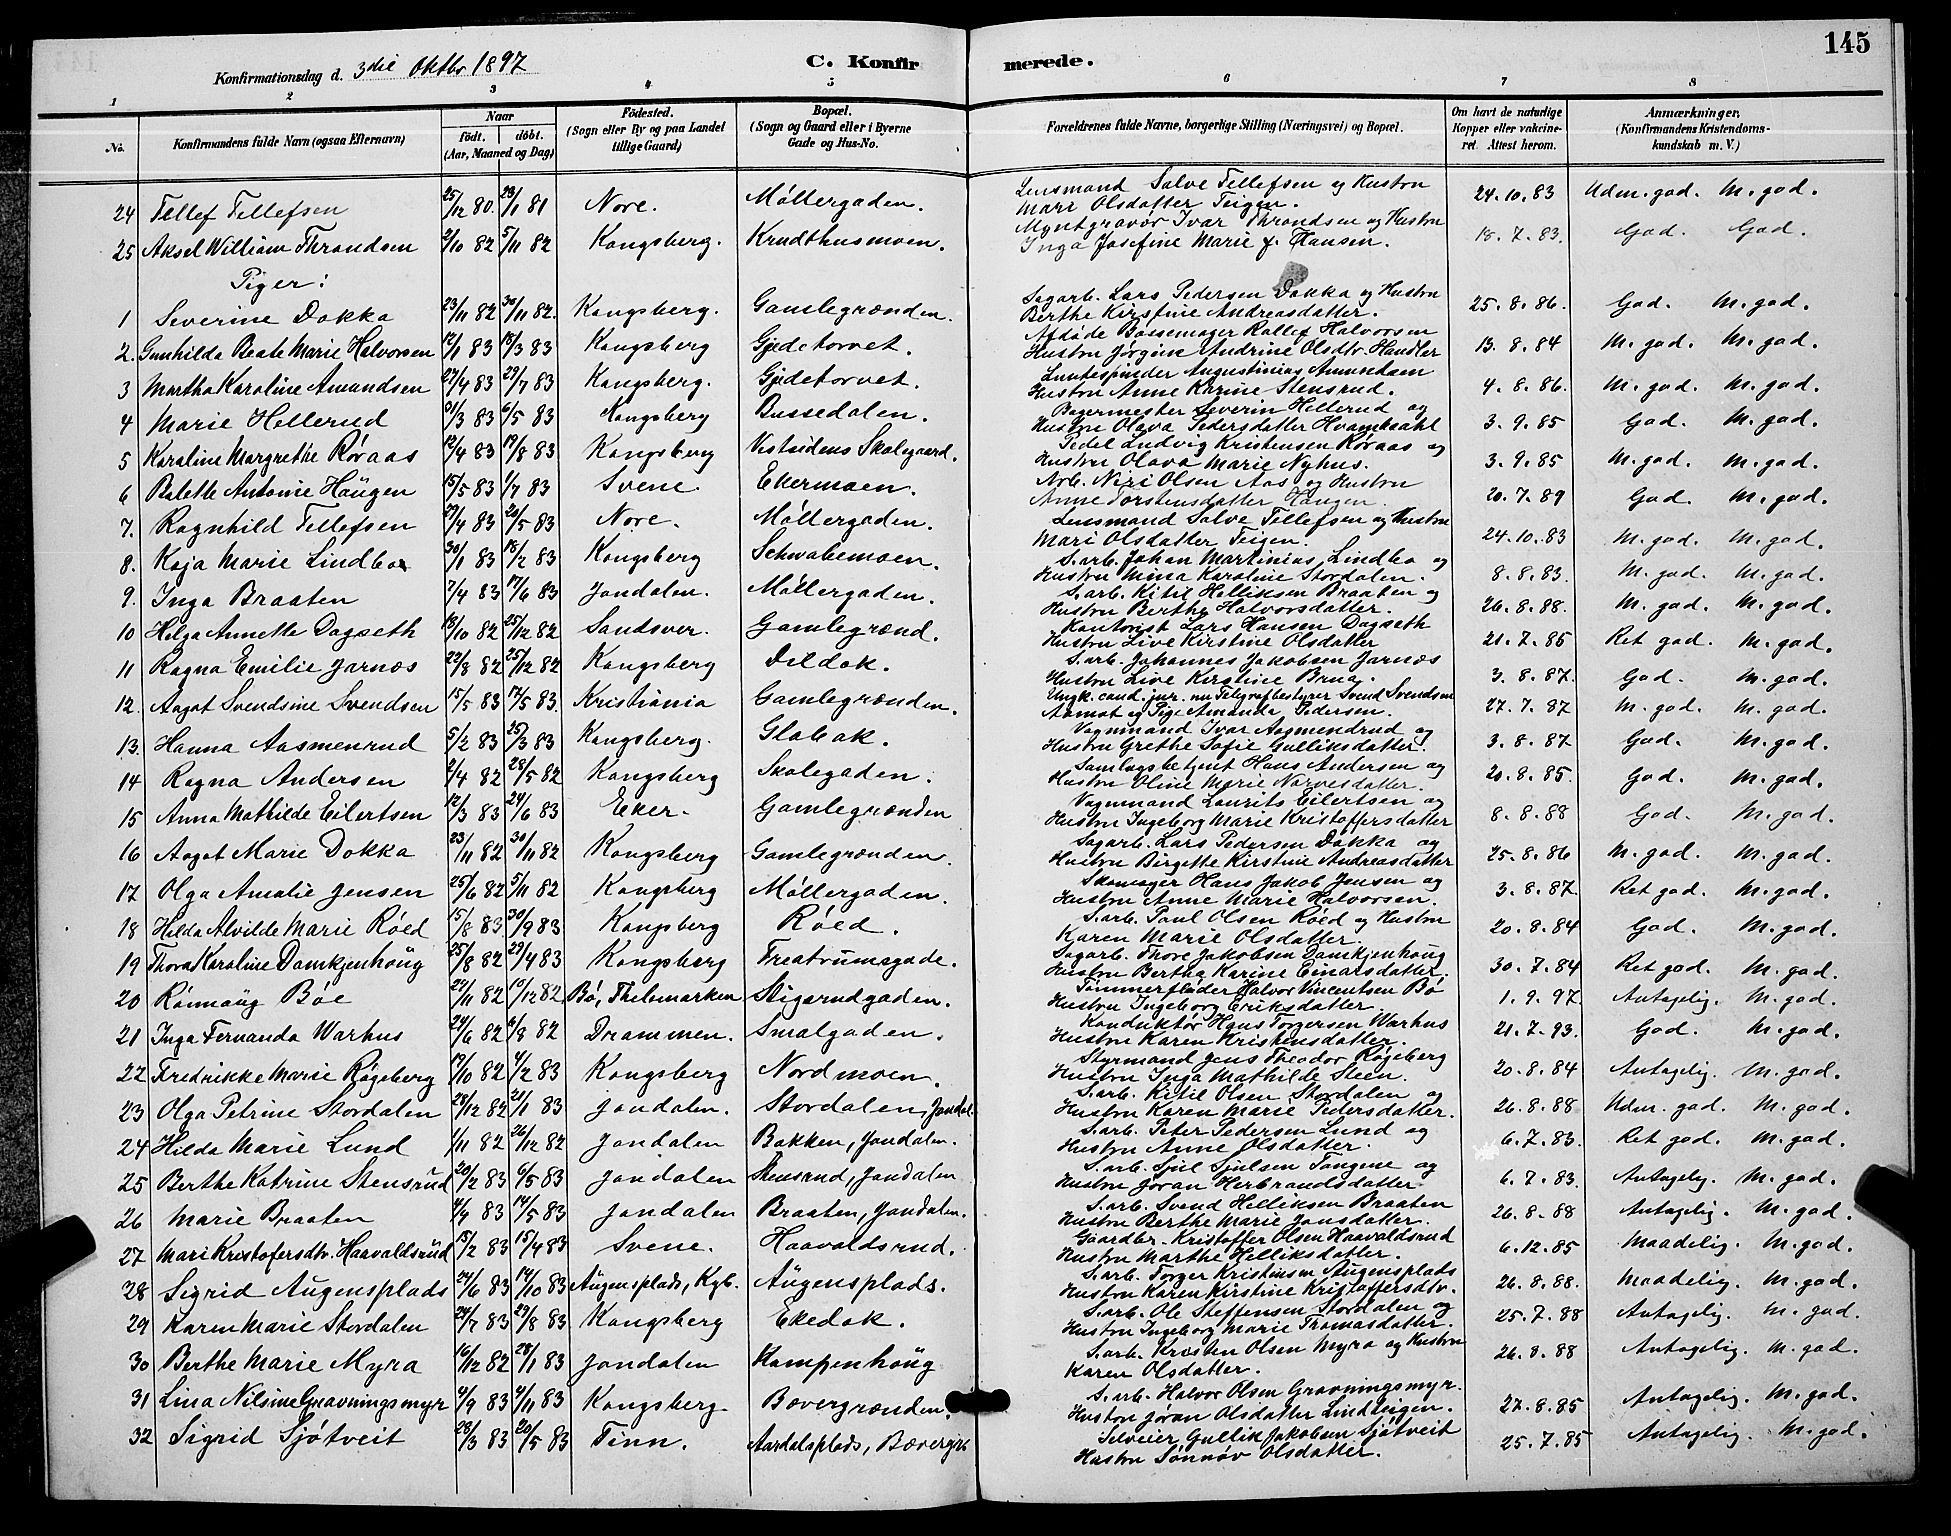 145
Konfirmationsdag d. 3die Oktbr 1897 C. Konfirmerede.
1 2 3 4 5 6 7 8
No. Konfirmandens fulde Navn (ogsaa Efternavn) Naar födt. döbt. (Aar, Maaned og Dag) Födested. (Sogn eller By og paa Landet tillige Gaard) Bopæl. (Sogn og Gaard eller i Byerne Gade og Hus-No. Forældrenes fulde Navne, borgerlige Stilling (Næringsvei) og Bopæl. Om havt de naturlige Kopper eller vakcineret. Attest herom. Anmærkninger, (Konfirmandens Kristendomskundskab m. V.)
24 Tellef Tellefsen 25/12 80. 23/1 81 Nore. Möllergaden. Lensmand Salve Tellefsen og Hustru Mari Olsdatter Teigen. 24.10.83 Udm. god. M. god.
25 Aksel William Thrandsen 2/10 82 5/11 82 Kongsberg. Krudthusmoen. Myntgravör Ivar Thrandsen og Hustru Inga Josefine Marie f. Hansen. 18.7.83. God. God.
Piger:
1 Severine Dokka 23/11 82 30/11 82. Kongsberg. Gamlegrænden. Sagarb. Lars Pedersen Dokka og Hustru Berthe Kirstine Andreasdatter. 25.8.86. God. M. god.
2. Gunhilda Beate Marie Halvorsen 12/1 83 18/3 83 Kongsberg Gjedetorvet. Afdöde Bössemager Rollef Halvorsen Hustru Jörgine Andrine Olsdtr. Handler 13.8.84 M. god. M. god.
3 Martha Karoline Amundsen 27/4 83 29/7 83 Kongsberg. Gjedetorvet. Luntespinder Augustinius Amundsen Hustru Anne Karine Stensrud. 4.8.86. M. god. M. god.
4 Marie Hellerud 31/3 83 6/5 83 Kongsberg Bussedalen. Bagermester Severin Hellerud og Hustru Olava Pedersdatter Hvambsahl 3.9.85 God. M. god.
5 Karoline Margrethe Röraas 12/4 83 19/8 83 Kongsberg Vestsidens Skolegaard. Pedel Ludvig Kristensen Röraas og Hustru Olava Marie Nyhus. 3.9.85 M. god. M. god.
6 Bolette Antonie Haugen 15/5 83 1/7 83 Svene. Ekermoen. Arb. Niri Olsen Aas og Hustru Anne Torstensdatter Haugen. 20.7.89 God. M. god.
7. Ragnhild Tellefsen 27/4 83 20/5 83 Nore. Möllergaden. Lensmand Salve Tellefsen og Hustru Mari Olsdatter Teigen. 24.10.83 M. god. M. god.
8. Kaja Marie Lindbo 30/1 83 18/2 83 Kongsberg Schwabemoen. S.arb. Johan Martinius Lindbo og Hustru Mina Karoline Stordalen. 8.8.83. M. god. M. god.
9. Inga Braaten 7/4 83 17/6 83 Jondalen. Möllergaden. S.arb. Kitil Helliksen Braaten og Hustru Berthe Halvorsdatter. 26.8.88. M. god. M. god.
10 Helga Annette Dagseth 18/10 82 25/12 82 Sandsver. Gamlegrænd. Kontorist Lars Hansen Dagseth Hustru Live Kirstine Olsdatter 21.7.85 Ret god. M. god.
11 Ragna Emilie Jarnæs 22/8 82 25/12 82 Kongsberg Dildok. S.arb. Johannes Jakobsen Jarnæs Hustru Live Kirstine Brua. 3.8.87. God. M. god.
12. Aagot Svendsine Svendsen 15/5 83 17/5 83. Kristiania Gamlegrænden. Ungk. cand. jur. nu Telegrafbestyrer Svend Svendsen Aamot og Pige Amanda Pedersen. 27.7.87 M. god. M. god.
13. Hanna Aasmenrud 5/2 83 25/3 83 Kongsberg. Glabak. Vognmand Ivar Aasmendrud og Hustru Grethe Sofie Gulliksdatter. 3.8.87 God. M. god.
14 Ragna Andersen 2/4 82 28/5 82 Kongsberg Skolegaden. Samlagsbetjent Hans Andersen og Hustru Oline Marie Narvesdatter. 20.8.85. God. M. god.
15 Anna Mathilde Eilertsen 12/3 83 24/6 83 Eker. Gamlegrænden Vognmand Laurits Eilertsen og Hustru Ingeborg Marie Kristoffersdatter 8.8.88 God. M. god.
16 Aagot Marie Dokka 23/11 82 30/11 82 Kongsberg Gamlegrænden. Sagarb. Lars Pedersen Dokka og Hustru Birgette Kirstine Andreasdatter 25.8.86 M. god. M. god.
17 Olga Amalie Jensen 25/6 82 5/11 82 Kongsberg Möllergaden. Skomager Hans Jakob Jensen og Hustru Anne Marie Halvorsen. 3.8.87. Ret god. M. god.
18 Hilda Alvilde Marie Röed 15/8 83 30/9 83 Kongsberg Röed. S.arb. Paul Olsen Röed og Hustru Karen Marie Olsdatter. 20.8.84 God. M. god.
19 Thora Karoline Damkjenhaug 25/8 82 29/4 83 Kongsberg Treatrumsgade. Sagarb. Thore Jakobsen Damkjenhaug Hustru Bertha Karine Einarsdatter. 30.7.84 Ret god. M. god.
20 Rönnaug Böe 29/11 82 10/12 82 Bö, Thelemarken Stigsrudgaden. Tömmerflöder Halvor Vincentsen Bö Hustru Ingeborg Eriksdatter. 1.9.97. Antagelig. M. god.
21 Inga Fernanda Warhus 24/6 82 6/8 82 Drammen. Smalgaden. Konduktör Hans Torgersen Warhus Hustru Karen Kristensdatter. 21.7.93. God. M. god.
22 Fredrikke Marie Rögeberg 19/10 82 4/2 83 Kongsberg Nordmoen. Styrmand Jens Theodor Rögeberg Hustru Inga Mathilde Steen. 20.8.84 Antagelig. M. god.
23 Olga Petrine Stordalen 28/12 82 21/1 83 Jondalen. Stordalen, Jondal. S.arb. Kitil Olsen Stordalen og Hustru Karen Marie Pedersdatter. 26.8.88 Udm. god. M. god.
24 Hilda Marie Lund 1/11 82 26/12 82 Jondalen Bakken, Jondalen. S.arb. Peter Pedersen Lund og Hustru Anne Olsdatter. 6.7.83. Ret god. M. god.
25 Berthe Katrine Stensrud 20/2 83 6/5 83 Jondalen Stensrud, Jondalen S.arb. Sjul Sjulsen Tangene og Hustru Jöran Herbrandsdatter 6.7.83. Antagelig. M. god.
26 Marie Braaten 4/4 83 14/5 83 Jondalen Braaten, Jondalen. S.arb. Svend Helliksen Braaten Hustru Berthe Marie Jonsdatter. 26.8.88 Antagelig. M. god.
27 Mari Kristofersdtr. Haavaldsrud 15/2 83 15/4 83 Svene. Haavaldsrud. Gaardbr. Kristoffer Olsen Haavaldsrud Hustru Marthe Helliksdatter. 6.12.85 Maadelig. M. god.
28 Sigrid Augensplads 24/6 83 14/10 83 Augensplads, Kgb. Augensplads. S.arb. Torger Kristensen Augensplads Hustru Karen Kirstine Kristoffersdtr. 26.8.88. Maadelig. M. god.
29 Karen Marie Stordalen 24/7 83 29/8 83 Kongsberg Ekedok. S.arb. Ole Steffensen Stordalen og Hustru Ingeborg Marie Tromasdatter. 25.7.88 Antagelig. M. god.
30 Berthe Marie Myra 16/12 82 28/1 83 Jondalen Kampenhaug S.arb. Kresten Olsen Myra og Hustru Karen Olsdatter. 26.8.88 Antagelig. M. god.
31 Lina Nilsine Gravningsmyr 4/9 83 4/11 83 Kongsberg. Bævergrænden. S.arb. Halvor Olsen Gravningsmyr. Hustru Jöran Olsdatter Lindteigen. 27.8.85 Antagelig. M. god.
32 Sigrid Sjötveit 28/3 83 20/5 83 Tinn. Aardalsplads, Bævergr. Selveier Gullik Jakobsen Sjötveit Hustru Sönnöv Olsdatter. 25.7.85 Antagelig. M. god.